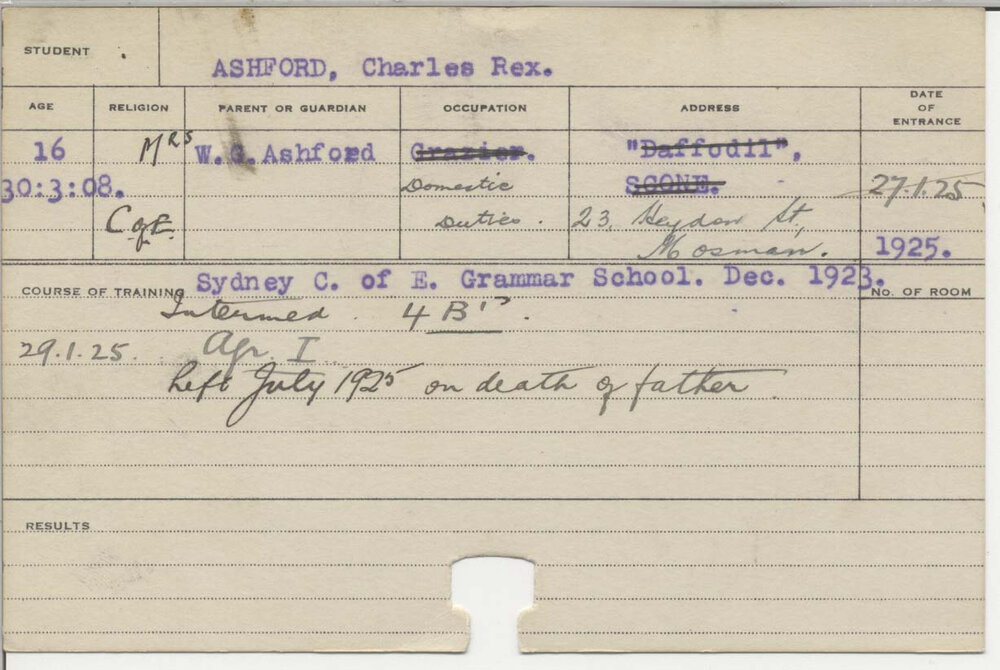 STUDENT
ASHFORD, Charles Rex.
AGE RELIGION PARENT OR GUARDIAN OCCUPATION ADDRESS DATE OF ENTRANCE
16 Mrs W.G. Ashford Grazier. "Daffodil",
30:3:08. Domestic SCONE. 27.1.25
C of E. Duties. 23, Heydon St,
Mosman. 1925.
COURSE OF TRAINING Sydney C. of E. Grammar School. Dec. 1923. NO. OF ROOM
Intermed. 4 B's.
29.1.25. Agr. I
Left July 1925 on death of father
RESULTS